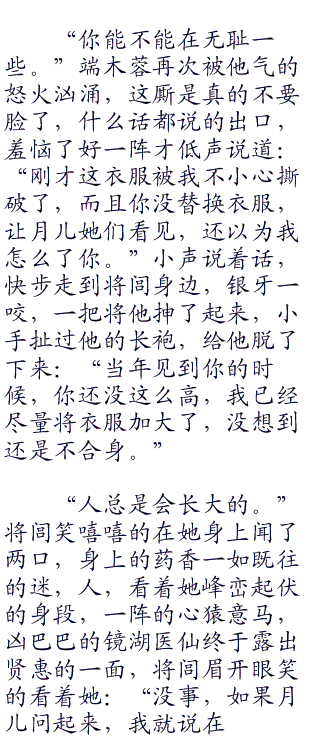 “你能不能在无耻一
些。”端木蓉再次被他气的
怒火汹涌，这厮是真的不要
脸了，什么话都说的出口，
羞恼了好一阵才低声说道：
“刚才这衣服被我不小心撕
破了，而且你没替换衣服，
让月儿她们看见，还以为我
怎么了你。”小声说着话，
快步走到将闾身边，银牙一
咬，一把将他抻了起来，小
手扯过他的长袍，给他脱了
下来：“当年见到你的时
候，你还没这么高，我已经
尽量将衣服加大了，没想到
还是不合身。”
“人总是会长大的。”
将闾笑嘻嘻的在她身上闻了
两口，身上的药香一如既往
的迷，人，看着她峰峦起伏
的身段，一阵的心猿意马，
凶巴巴的镜湖医仙终于露出
贤惠的一面，将闾眉开眼笑
的看着她：“没事，如果月
儿问起来，我就说在